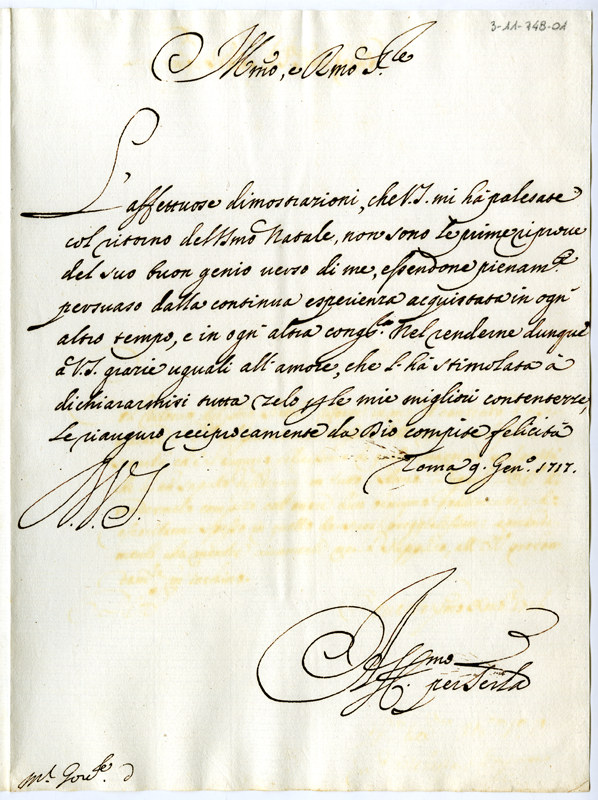 3-11-748-01
Illmo, e Rmo Sre
L'affettuose dimostrazioni, che V.S. mi hà palesate
col ritorno del Smo Natale, non sono le prime riprove
del suo buon genio verso di me, essendone pienamte
persuaso dalla continua esperienza acquistata in ogn'
altro tempo, e in ogn'altra congra. Nel renderne dunque
à V.S. grazie uguali all'amore, che l'hà stimolata à
dichiararmisi tutta zelo p le mie migliori contentezze,
Le riauguro reciprocamente da Dio compite felicità
Roma 9. Geno. 1717.
V.S.
Affmo
per Serla